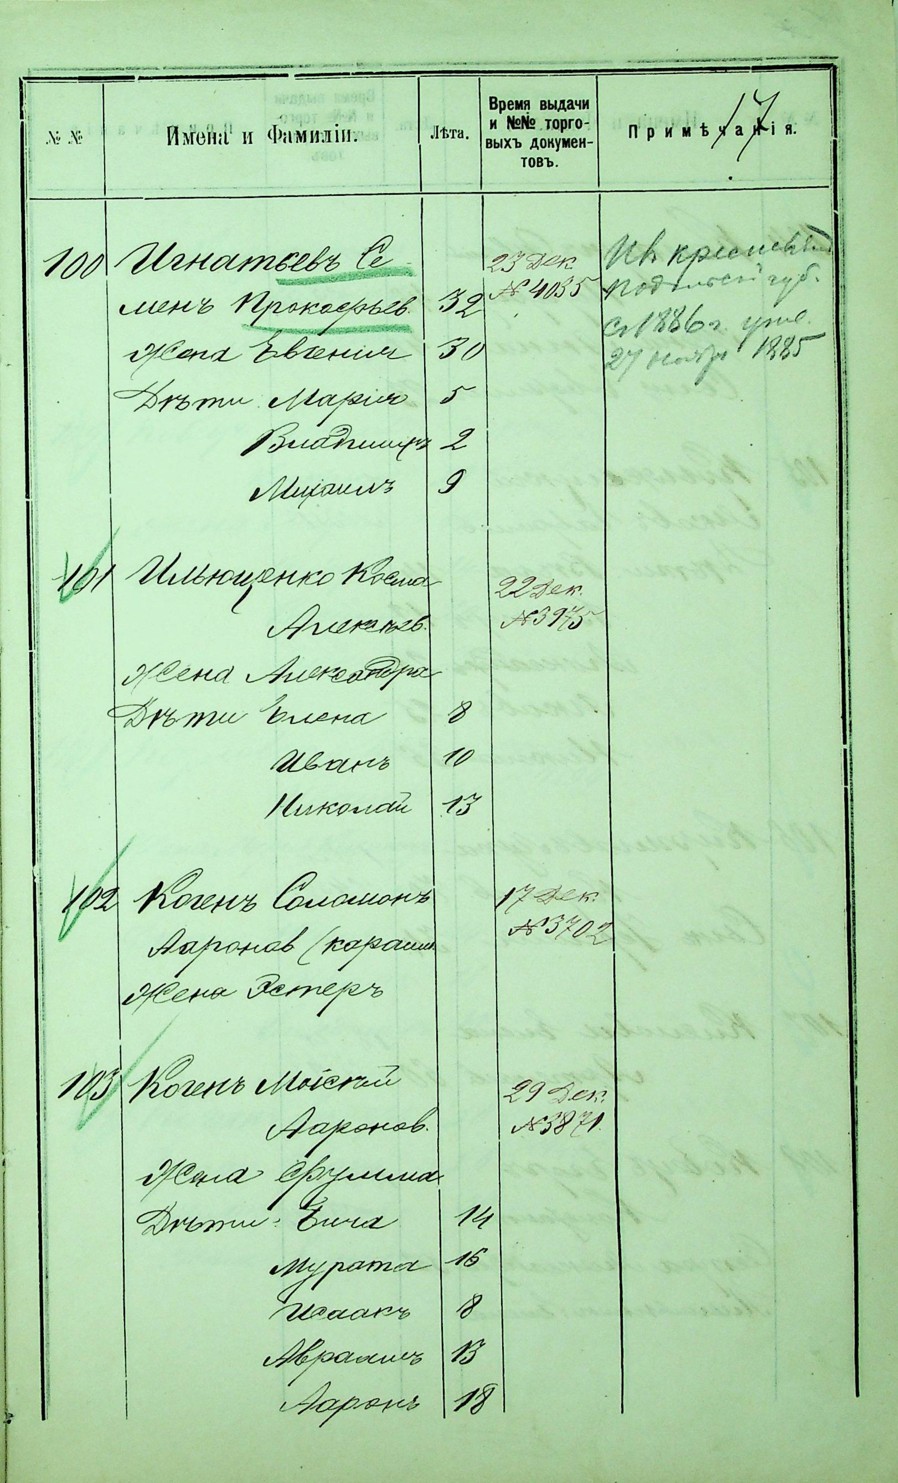 17
№ №
Имена и Фамиліи.
Лѣта.
Время выдачи
и №№ торго-
выхъ докумен-
товъ.
Примѣчанія.
100 Игнатьевъ Се
менъ Прокофьев. 32
23 Дек
№ 4035
Изъ крестьянъ
Подольской губ.
съ 1886 г.
27 ноября 1885
Жена Евгенія 30
Дѣти Марія 5
Владиміръ 2
Михаилъ 9
101 Ильющенко Косма
22 Дек.
Алексѣев.
№ 3975
Жена Александра
Дѣти Елена 8
Иванъ 10
Николай 13
102 Когенъ Соломонъ
17 Дек.
Ааронов (караим
№ 3702
Жена Эстеръ
103 Когенъ Моісей
29 Дек.
Ааронов.
№ 3871.
Жена Фумма
Дѣти: 14
Мурата 16
Исаакъ 8
Авраамъ 13
Ааронъ 18